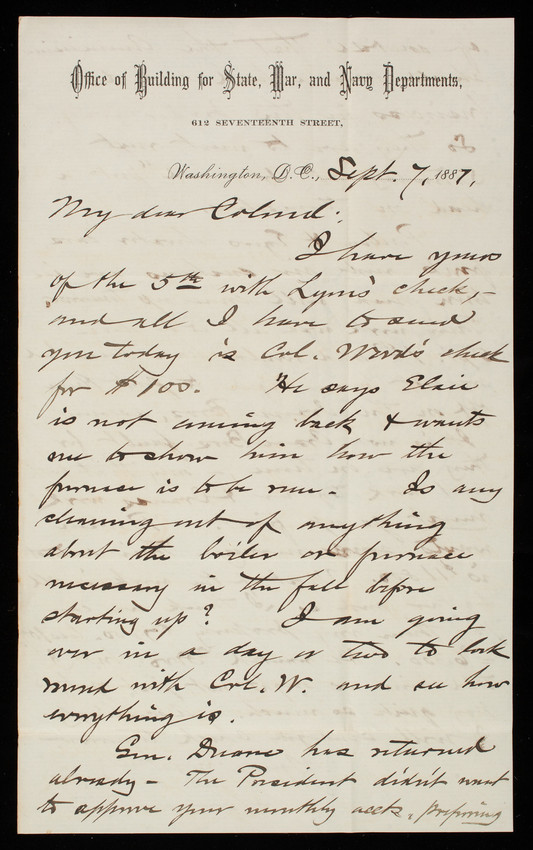 Office of Building for State, War, and Navy Departments,
612 SEVENTEENTH STREET,
Washington, D.C., Sept. 7, 1887,
My dear Colonel:
I have yours
of the 5th with Lyon's check,-
and all I have to send
you today is Col. Ward's check
for $100. He says Elsie
is not coming back & wants
me to show him how the
furnace is to be run - Is any
cleaning out of anything
about the boiler or furnace
necessary in the fall before
starting up? I am going
over in a day or two to look
round with Col. W. and see how
everything is.
Gen. Duane has returned
already - The President didn't want
to approve your monthly accts, preferring